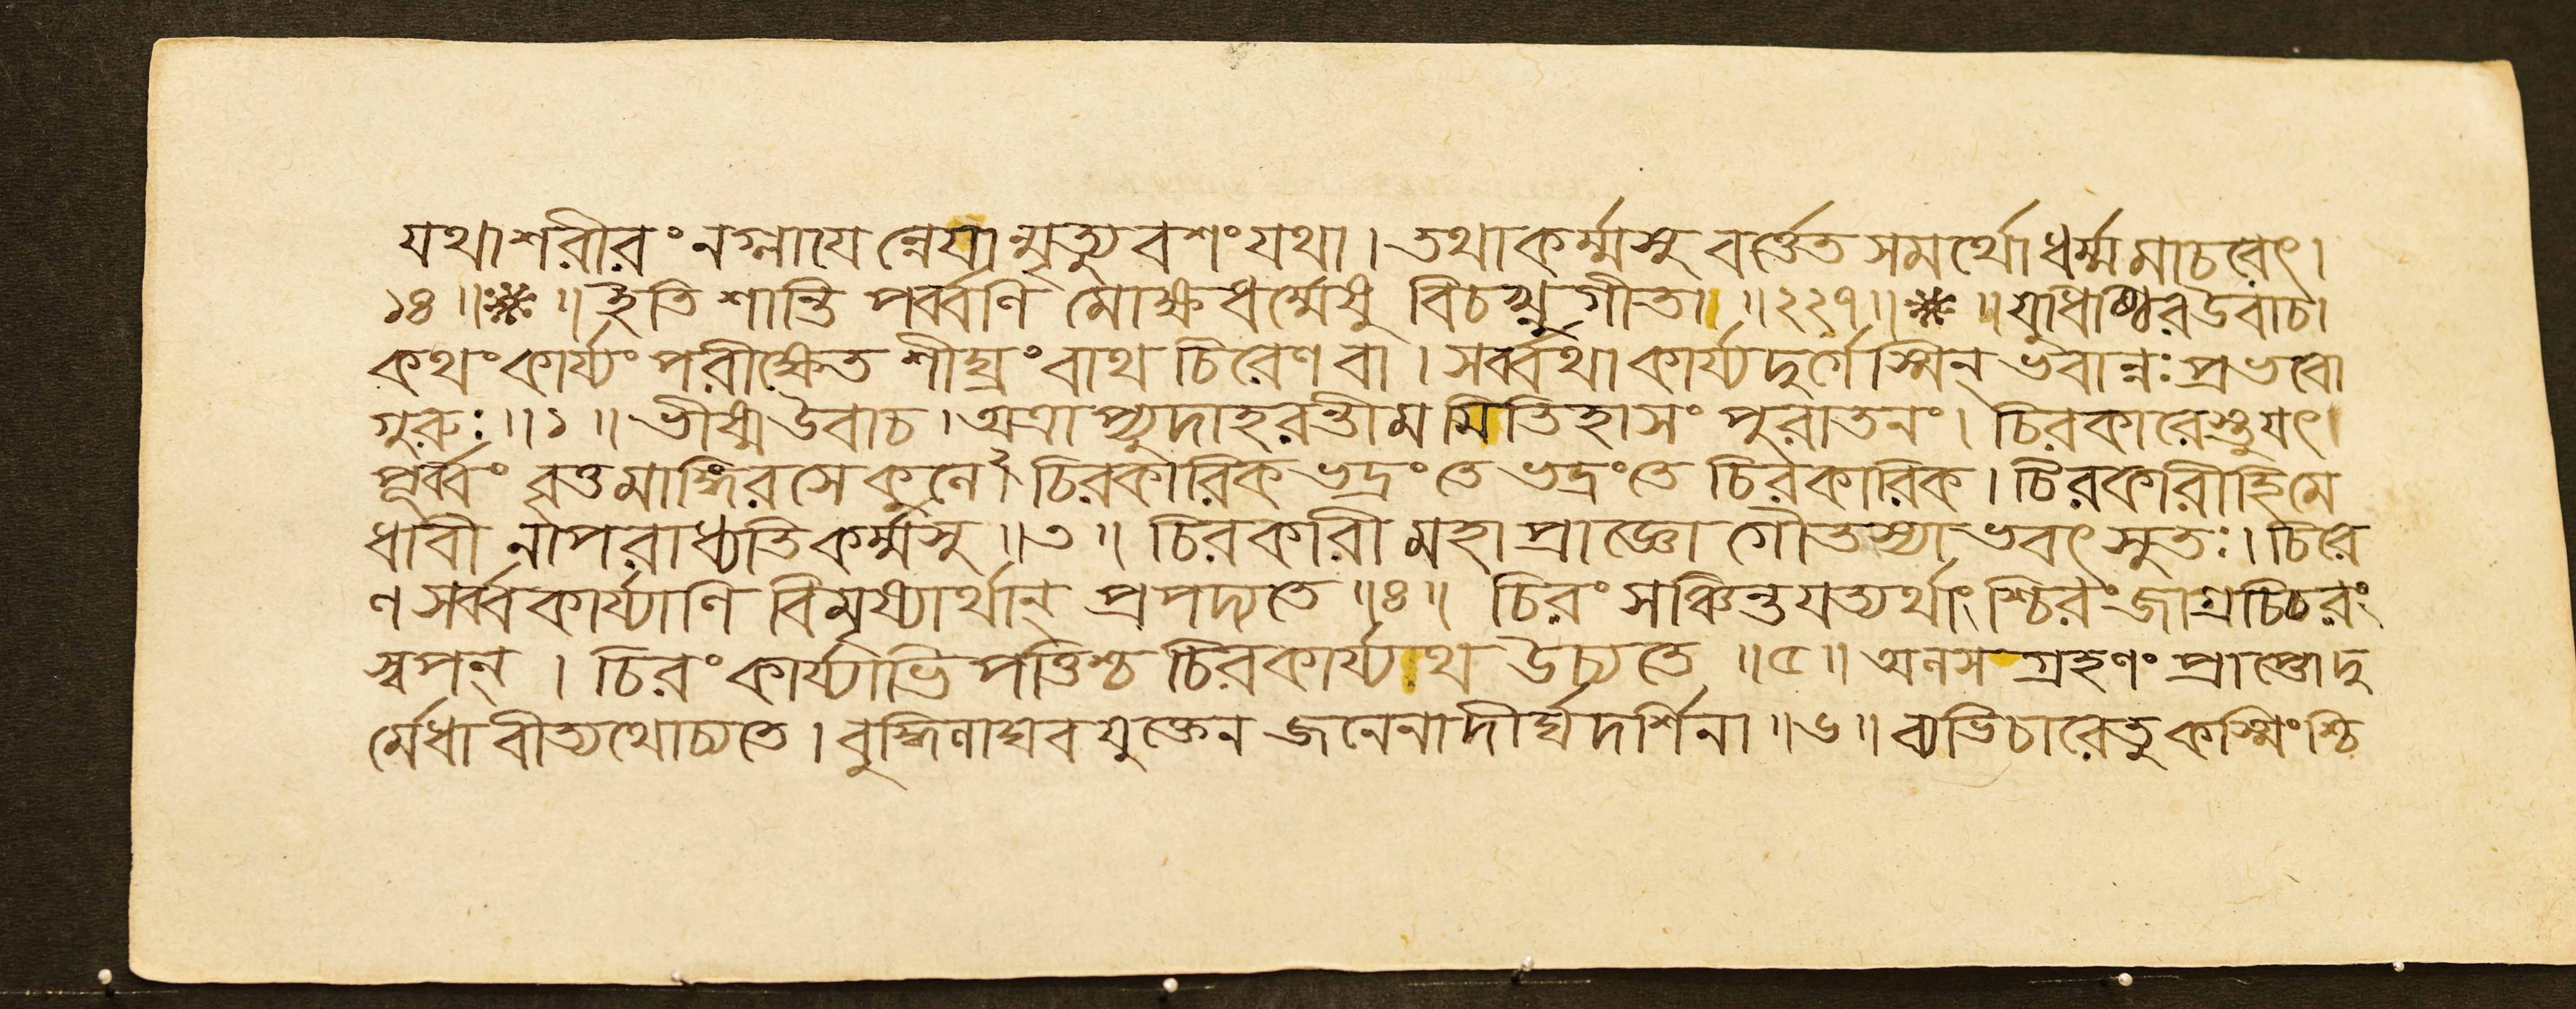 যথাশরীরং নগ্লাযেন্নেযান্মৃত্যুবশংযথা । তথাকর্ম্মসু বর্ত্তেত সমর্থোধর্ম্মমাচরেৎ ।
১৪ ॥❋॥ ইতি শান্তি পর্ব্বণি মোক্ষধর্ম্মেষু বিচখ্নুগীতা ॥২২৭॥❋॥ যুধিষ্ঠিরউবাচ।
কথংকার্য্যং পরীক্ষেত শীঘ্রংবাথ চিরেণ বা । সর্ব্বথাকার্য্যদুর্গেস্মিন্ ভবান্নঃ প্রভবো
গুরুঃ ॥১॥ ভীষ্মউবাচ । অত্রাপ্যুদাহরন্তীমমিতিহাসং পুরাতনং । চিরকারেস্তুযৎ।
পূর্ব্বং বৃত্তমাঙ্গিরসেকুলে। চিরকারিক ভদ্রংতে ভদ্রংতে চিরকারিক । চিরকারীহিমে
ধাবী নাপরাধ্যতিকর্ম্মসু ॥৩॥ চিরকারী মহাপ্রাজ্ঞো গৌতস্যাভবৎ সুতঃ । চিরে
ণ সর্ব্বকার্য্যাণি বিমৃষ্যার্থান্ প্রপদ্যতে ॥৪॥ চিরং সঞ্চিন্তযত্যর্থাংশ্চিরং জাগ্রচ্চিরং
স্বপন্ । চিরংকার্য্যাভিপত্তিশ্চ চিরকার্য্যাথ উচ্যতে ॥৫॥ অনস গ্রহণং প্রাপ্তোদু
র্মেধাবীত্যথোচ্যতে । বুদ্ধিলাঘবযুক্তেন জনেনাদীর্ঘদর্শিনা ॥৬॥ ব্যভিচারেতুকস্মিংশ্চি